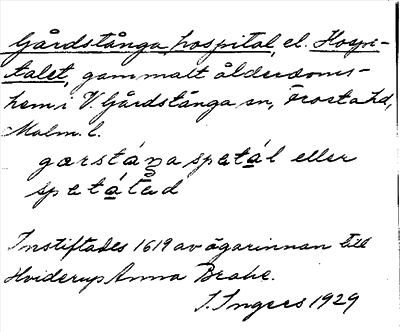 Gårdstånga hospital, el. Hospi-
talet, gammalt ålderdoms-
hem i V. Gårdstånga sn, Frosta hd,
Malm. l.
gårstáŋa spetál eller
spetálęd
Instiftades 1619 av ägarinnan till
Hviderup Anna Brahe.
S. Ingers 1929